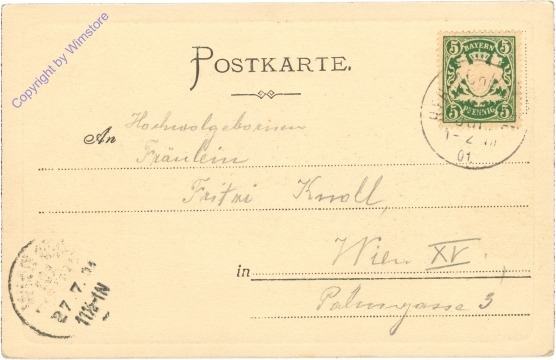 Copyright by Wimstore
POSTKARTE.
5 BAYERN 5
5 PFENNIG 5
1-2 N
01
An Hochwolgeborinen
Fräulein
Fritzi Knoll,
in Wien XV.
Palmgasse 3
27.7.01
11½-1N